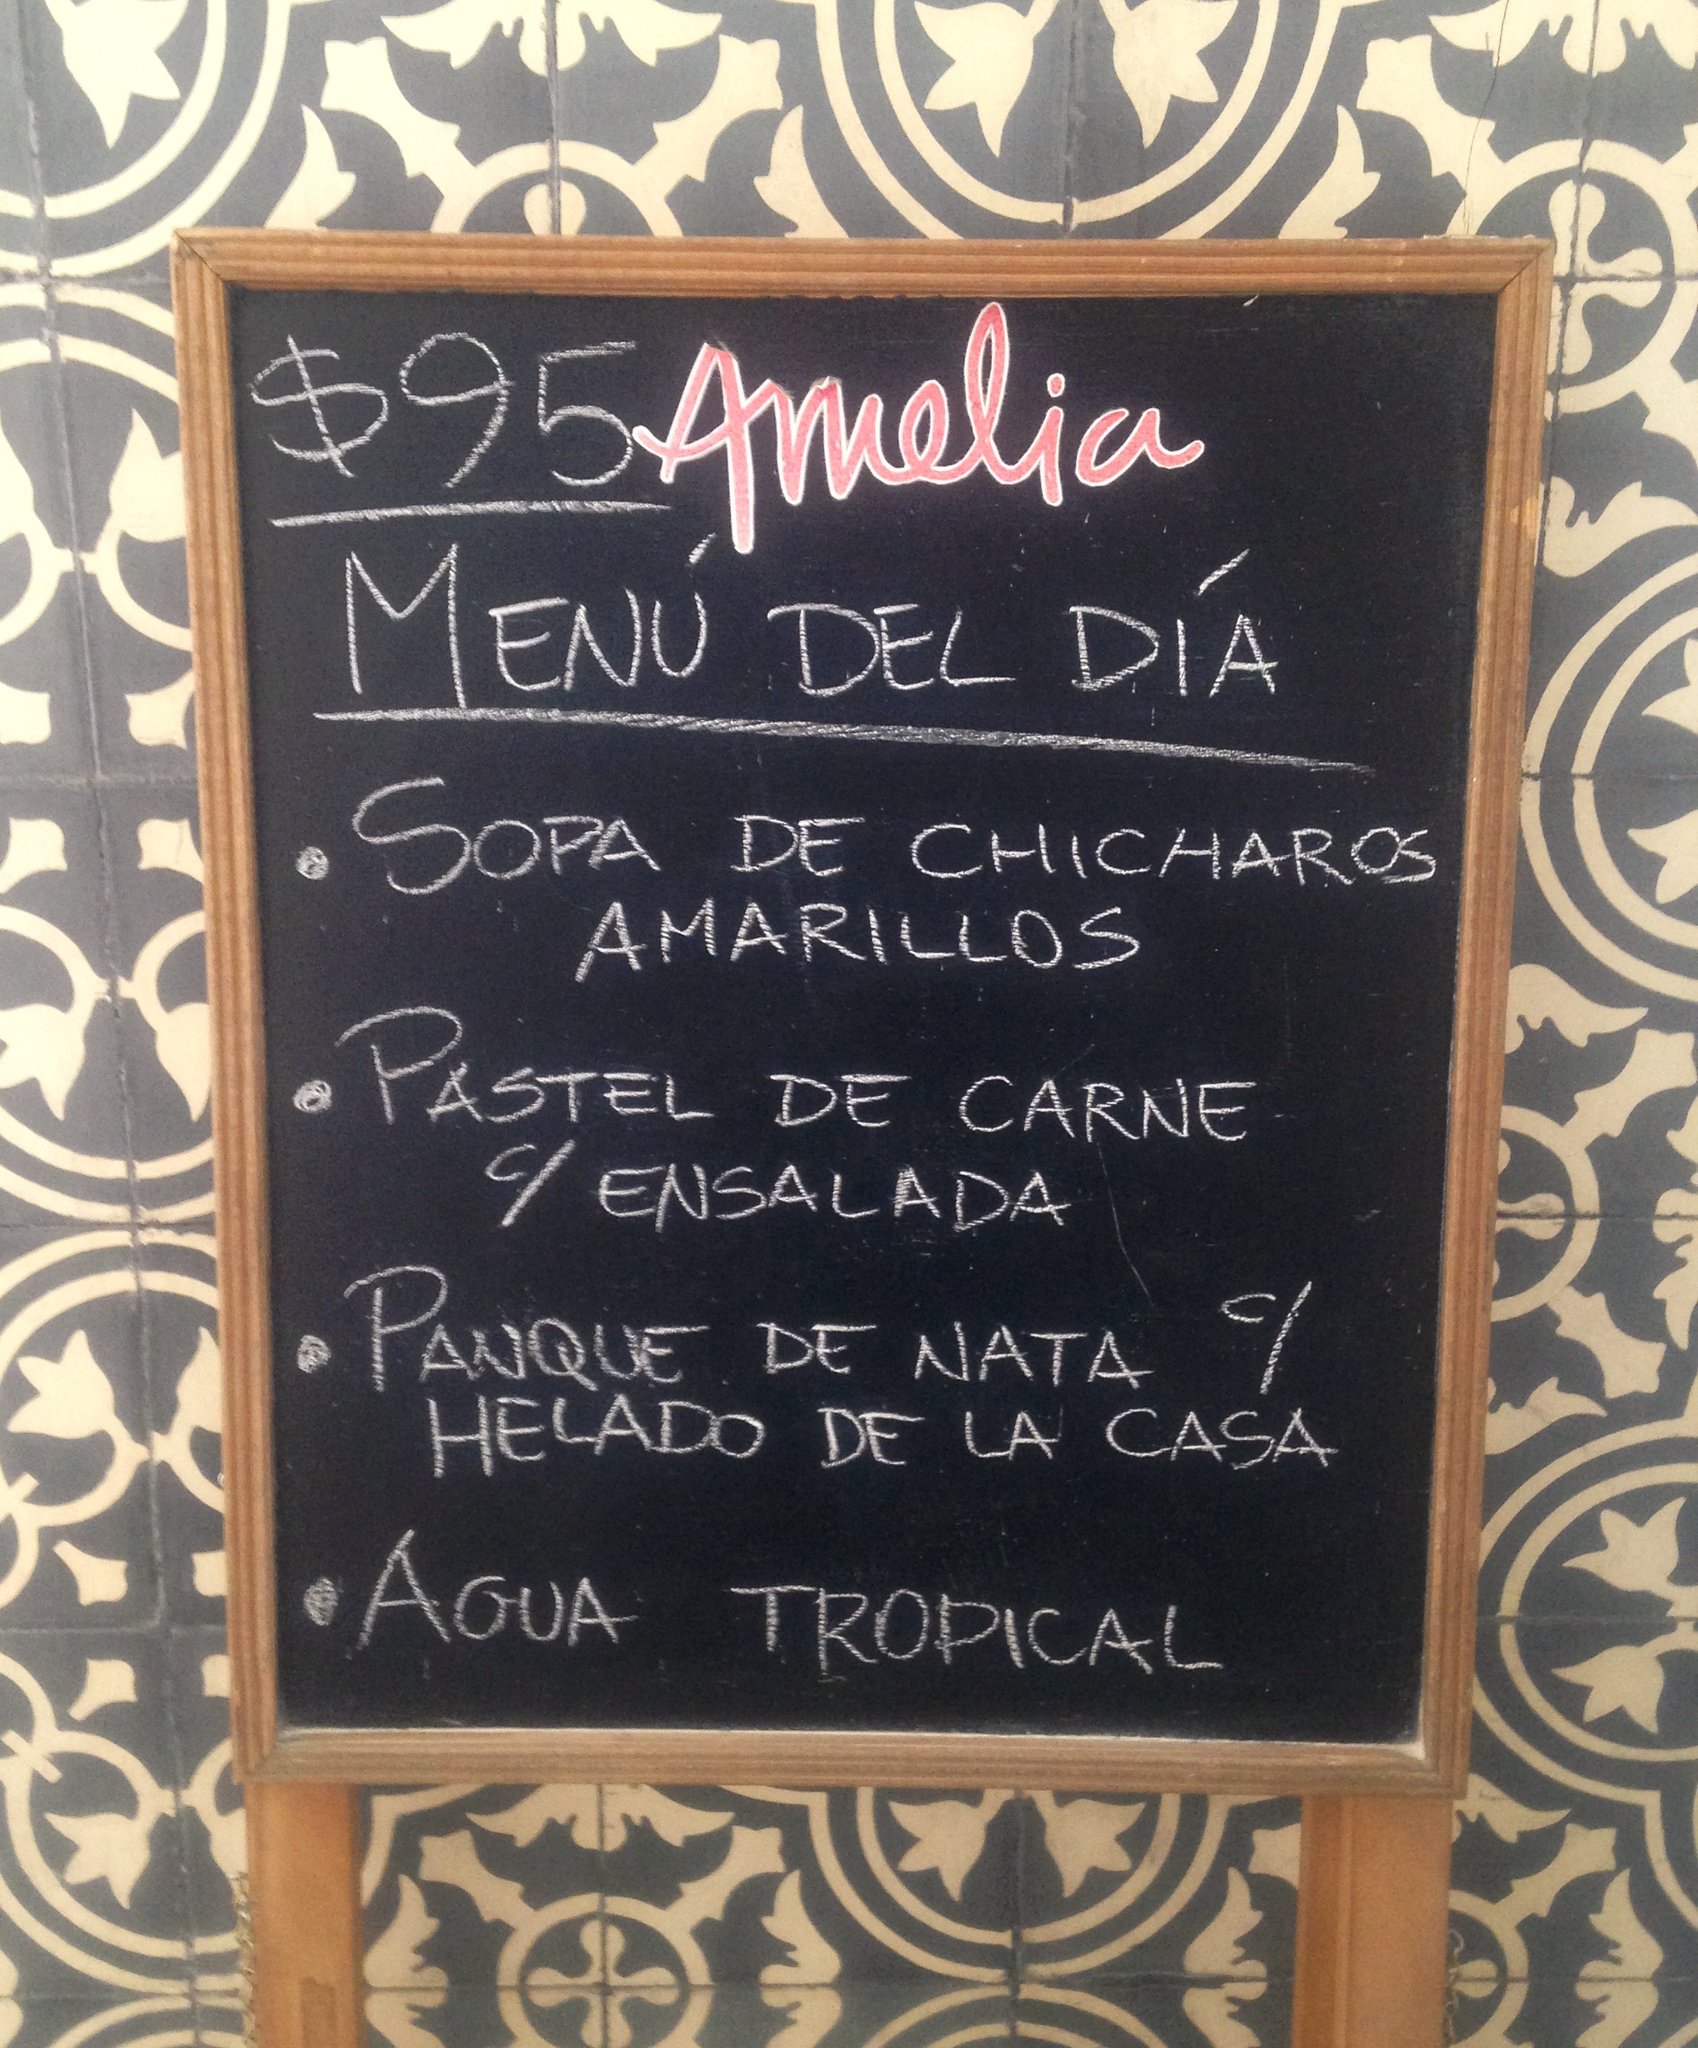 $95 Amelia
MENÚ DEL DÍA
• SOPA DE CHICHAROS
AMARILLOS
• PASTEL DE CARNE
c/ ENSALADA
• PANQUE DE NATA c/
HELADO DE LA CASA
• AGUA TROPICAL